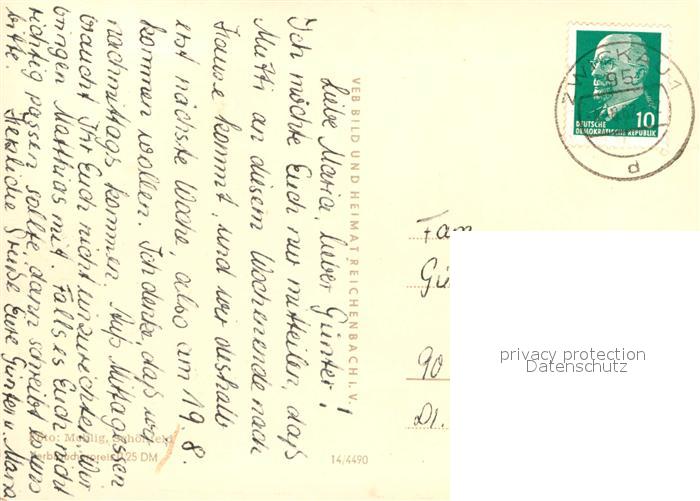 Liebe Maria, lieber Günter!
Ich möchte Euch nur mitteilen, daß
Mutti an diesem Wochenende nach
Hause kommt, und wir deshalb
erst nächste Woche, also am 19. 8.
kommen wollen. Ich denke, daß wir
nachmittags kommen. Aufs Mittagessen
braucht Ihr Euch nicht einzurichten. Wir
bringen Matthias mit. Falls es Euch nicht
richtig passen sollte, dann schreibt es uns
bitte. Herzliche Grüße Eure Günter u. Maria
VEB BILD UND HEIMAT REICHENBACH I. V.
Foto: Schönfeld
Verbraucherpreis 0,25 DM
14/4490
ZWICKAU 1
95
d
10
DEUTSCHE
DEMOKRATISCHE REPUBLIK
Fam.
Gü
90
privacy protection
Datenschutz